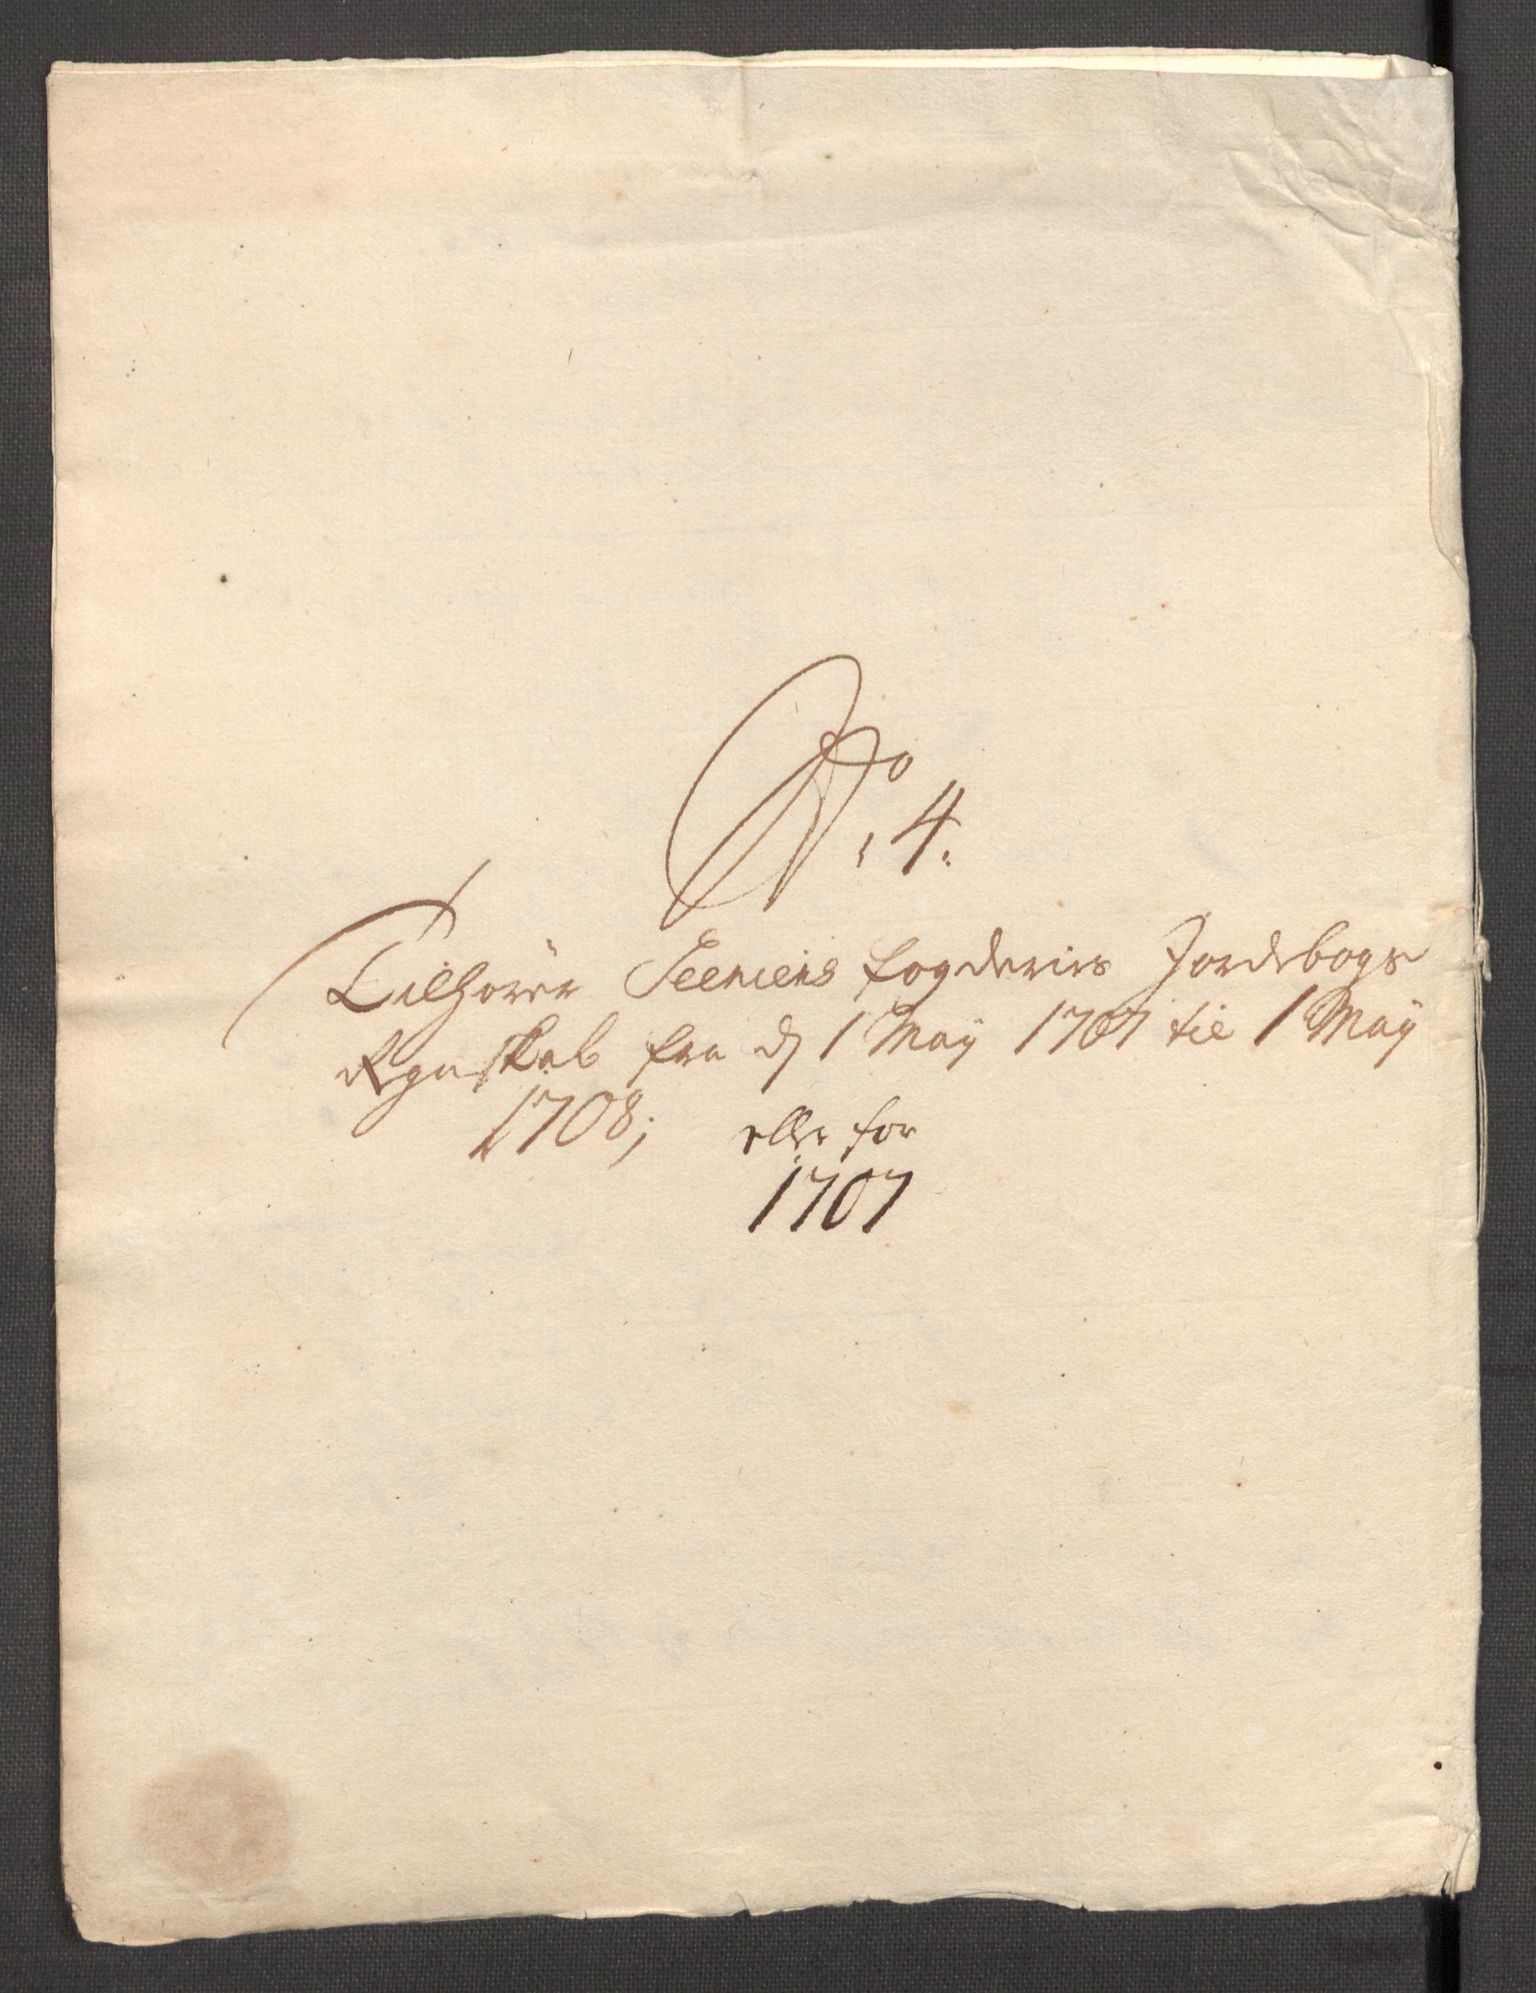 No: 4.
Tilhører Senniens fogderies Jordebogs
Regnskab fra d 1 Maÿ 1707 til 1 Maÿ
1708; eller for
1707